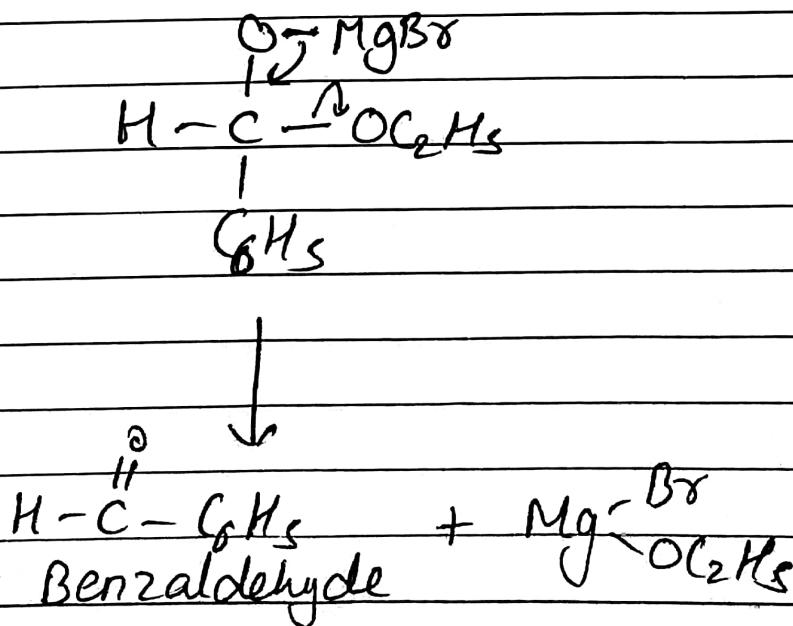 O - MgBr
H - C - OC₂H₅
C₆H₅
O
H - C - C₆H₅ + Mg Br
OC₂H₅
Benzaldehyde